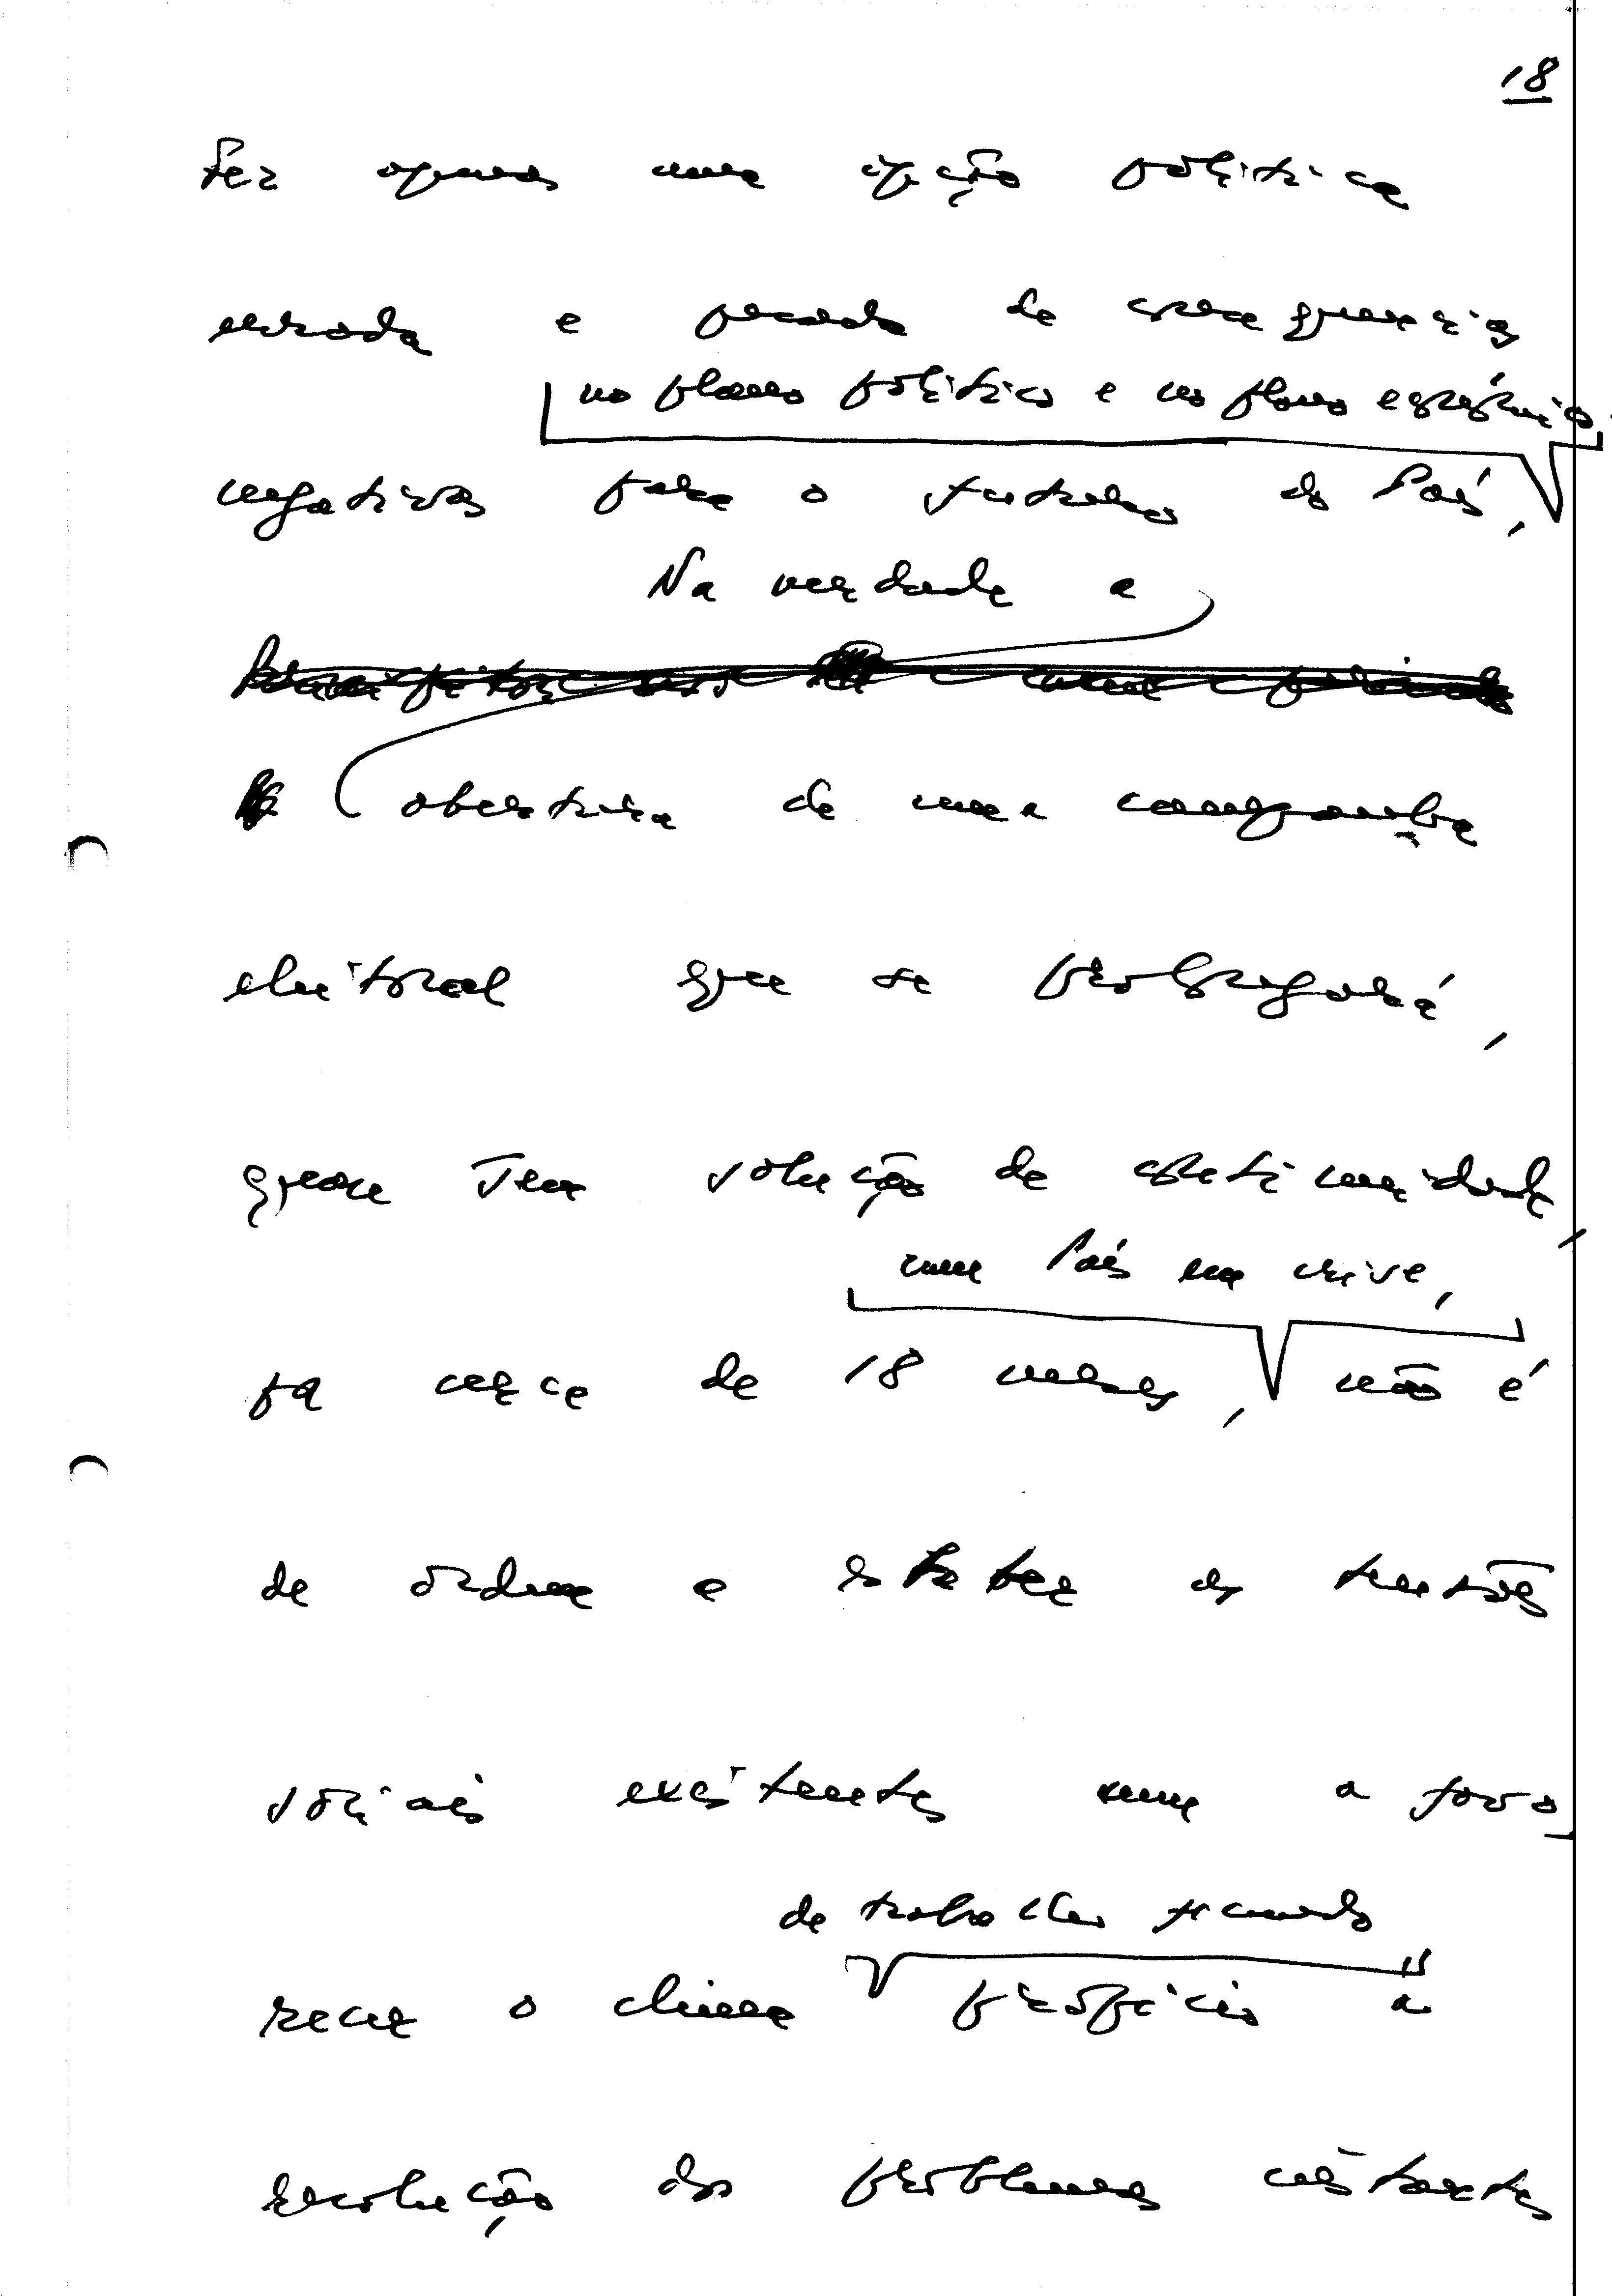 18
fez apenas uma opção política
errada e pesada de consequências
no plano político e no plano económico,
negativas para o futuro do País,
Na verdade a
abertura de uma campanha
eleitoral que se prolongará,
quase sem solução de continuidade
num País em crise,
por cerca de 18 meses, não é
de ordem a esbater as tensões
sociais existentes nem a favo
recer o clima propício à
de trabalho fecundo
resolução dos problemas instantes